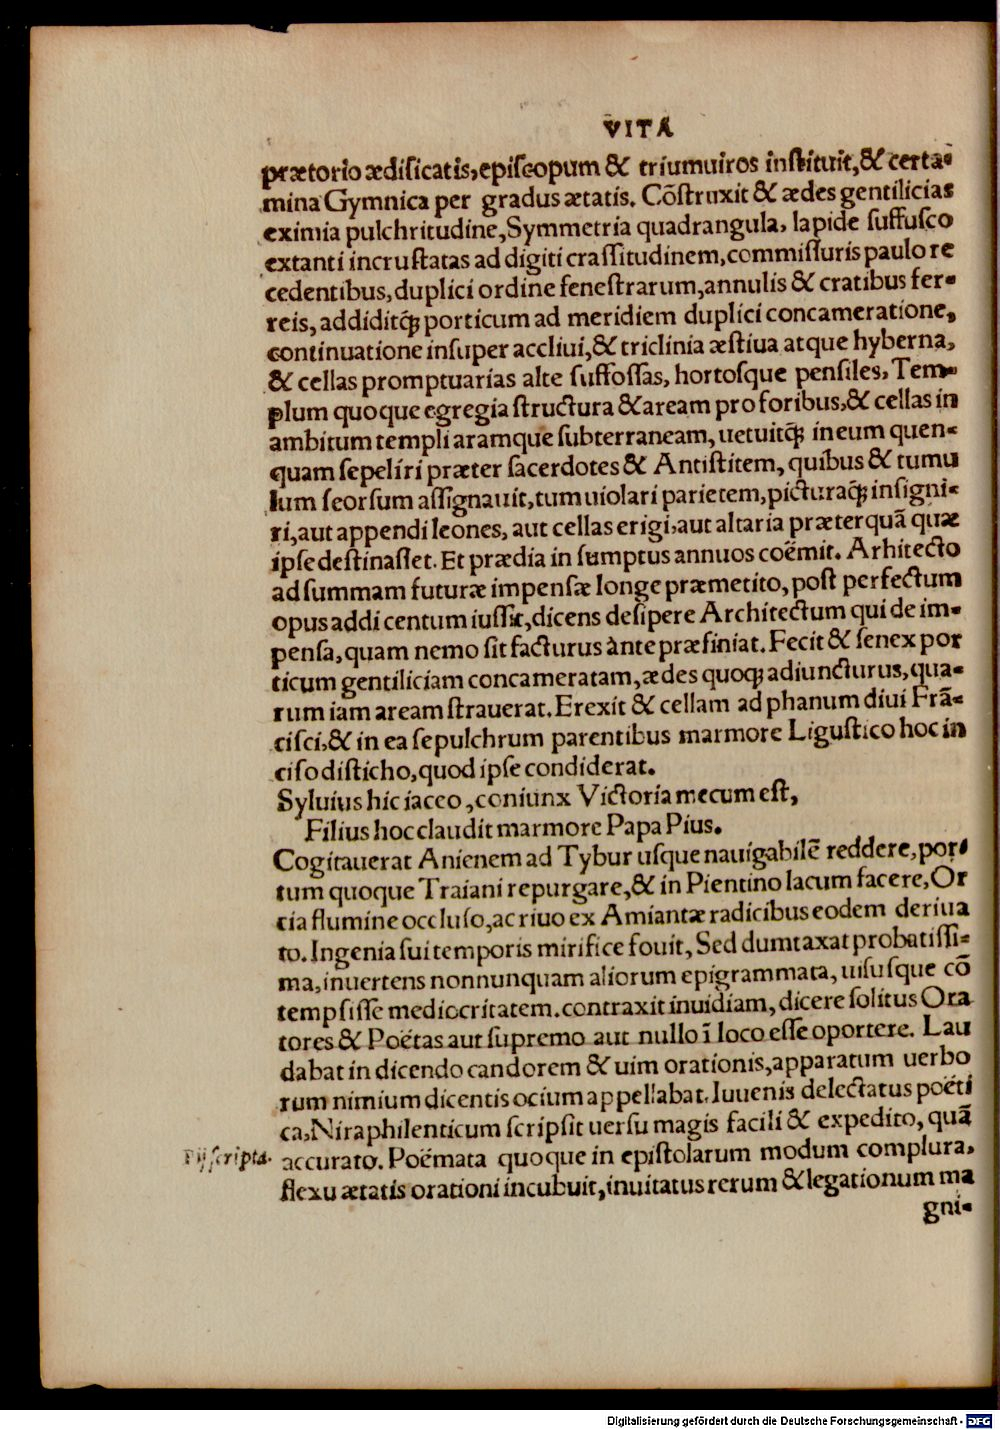 VITA
prætorio ædificatis, episcopum & triumuiros instituit, & certa-
mina Gymnica per gradus ætatis. Cõstruxit & ædes gentilicias
eximia pulchritudine, Symmetria quadrangula, lapide suffusco
extanti incrustatas ad digiti crassitudinem, commissuris paulo re
cedentibus, duplici ordine fenestrarum, annulis & cratibus fer-
reis, addiditq; porticum ad meridiem duplici concameratione,
continuatione insuper accliui, & triclinia æstiua atque hyberna,
& cellas promptuarias alte suffossas, hortosque pensiles, Tem-
plum quoque egregia structura & aream pro foribus, & cellas in
ambitum templi aramque subterraneam, uetuitq; in eum quen-
quam sepeliri præter sacerdotes & Antistitem, quibus & tumu
lum seorsum assignauit, tum uiolari parietem, picturaq; insigni-
ri, aut appendi leones, aut cellas erigi, aut altaria præterquã quæ
ipse destinasset. Et prædia in sumptus annuos coëmit. Arhitecto
ad summam futuræ impensæ longe præmetito, post perfectum
opus addi centum iussit, dicens desipere Architectum qui de im-
pensa, quam nemo sit facturus ànte præfiniat. Fecit & senex por
ticum gentiliciam concameratam, ædes quoq; adiuncturus, qua-
rum iam aream strauerat. Erexit & cellam ad phanum diui Frã-
cisci, & in ea sepulchrum parentibus marmore Ligustico hoc in
ciso disticho, quod ipse condiderat.
Syluius hic iaceo, coniunx Victoria mecum est,
Filius hoc claudit marmore Papa Pius.
Cogitauerat Anienem ad Tybur usque nauigabilẽ reddere, por-
tum quoque Traiani repurgare, & in Pientino lacum facere, Or
cia flumine occluso, ac riuo ex Amiantæ radicibus eodem deriua
to. Ingenia sui temporis mirifice fouit, Sed dumtaxat probatissi-
ma, inuertens nonnunquam aliorum epigrammata, uisusque cõ
tempsisse mediocritatem. contraxit inuidiam, dicere solitus Ora
tores & Poëtas aut supremo aut nullo ĩ loco esse oportere. Lau
dabat in dicendo candorem & uim orationis, apparatum uerbo
rum nimium dicentis ocium appellabat. Iuuenis delectatus poëti
ca, Niraphilenticum scripsit uersu magis facili & expedito, quã
Pij scripta. accurato. Poëmata quoque in epistolarum modum complura,
flexu ætatis orationi incubuit, inuitatus rerum & legationum ma
gni-
Digitalisierung gefördert durch die Deutsche Forschungsgemeinschaft - DFG